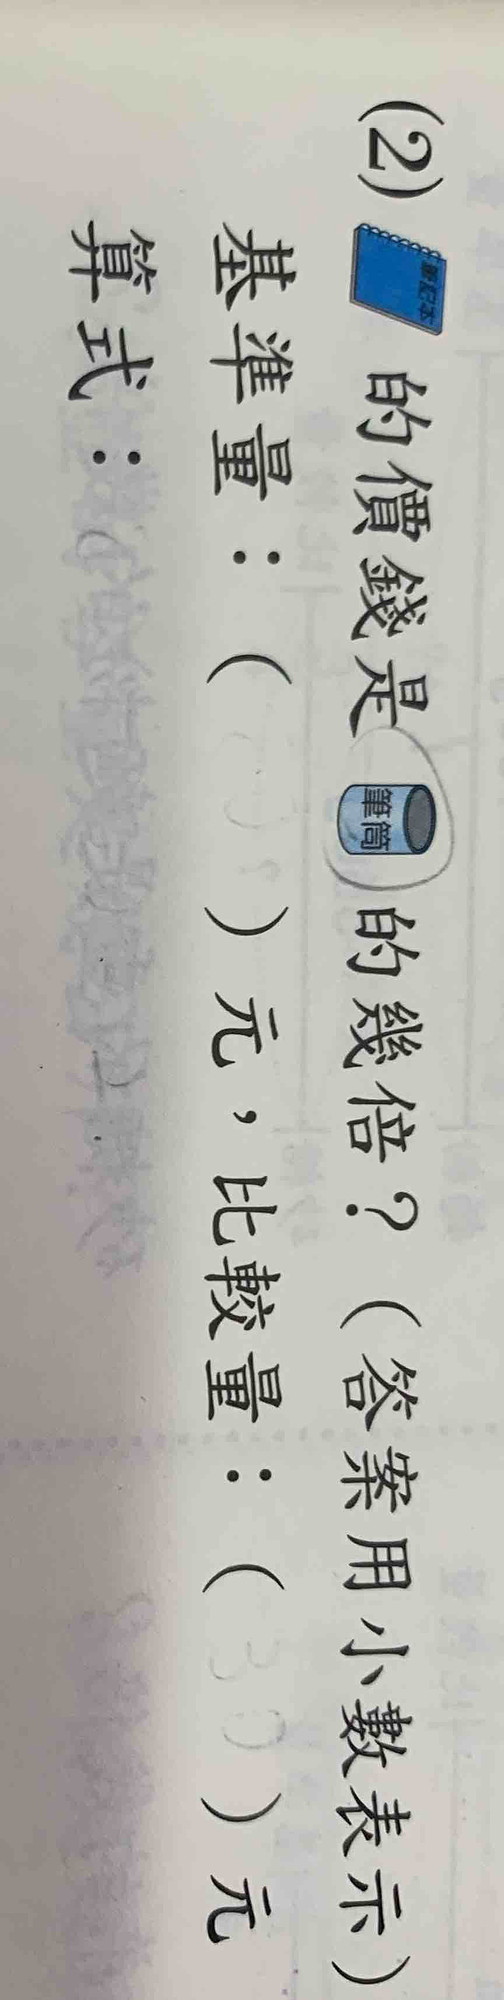 (2) 筆記本 的價錢是 筆筒 的幾倍？（答案用小數表示）
基準量：（ ）元，比較量：（ 30 ）元
算式：